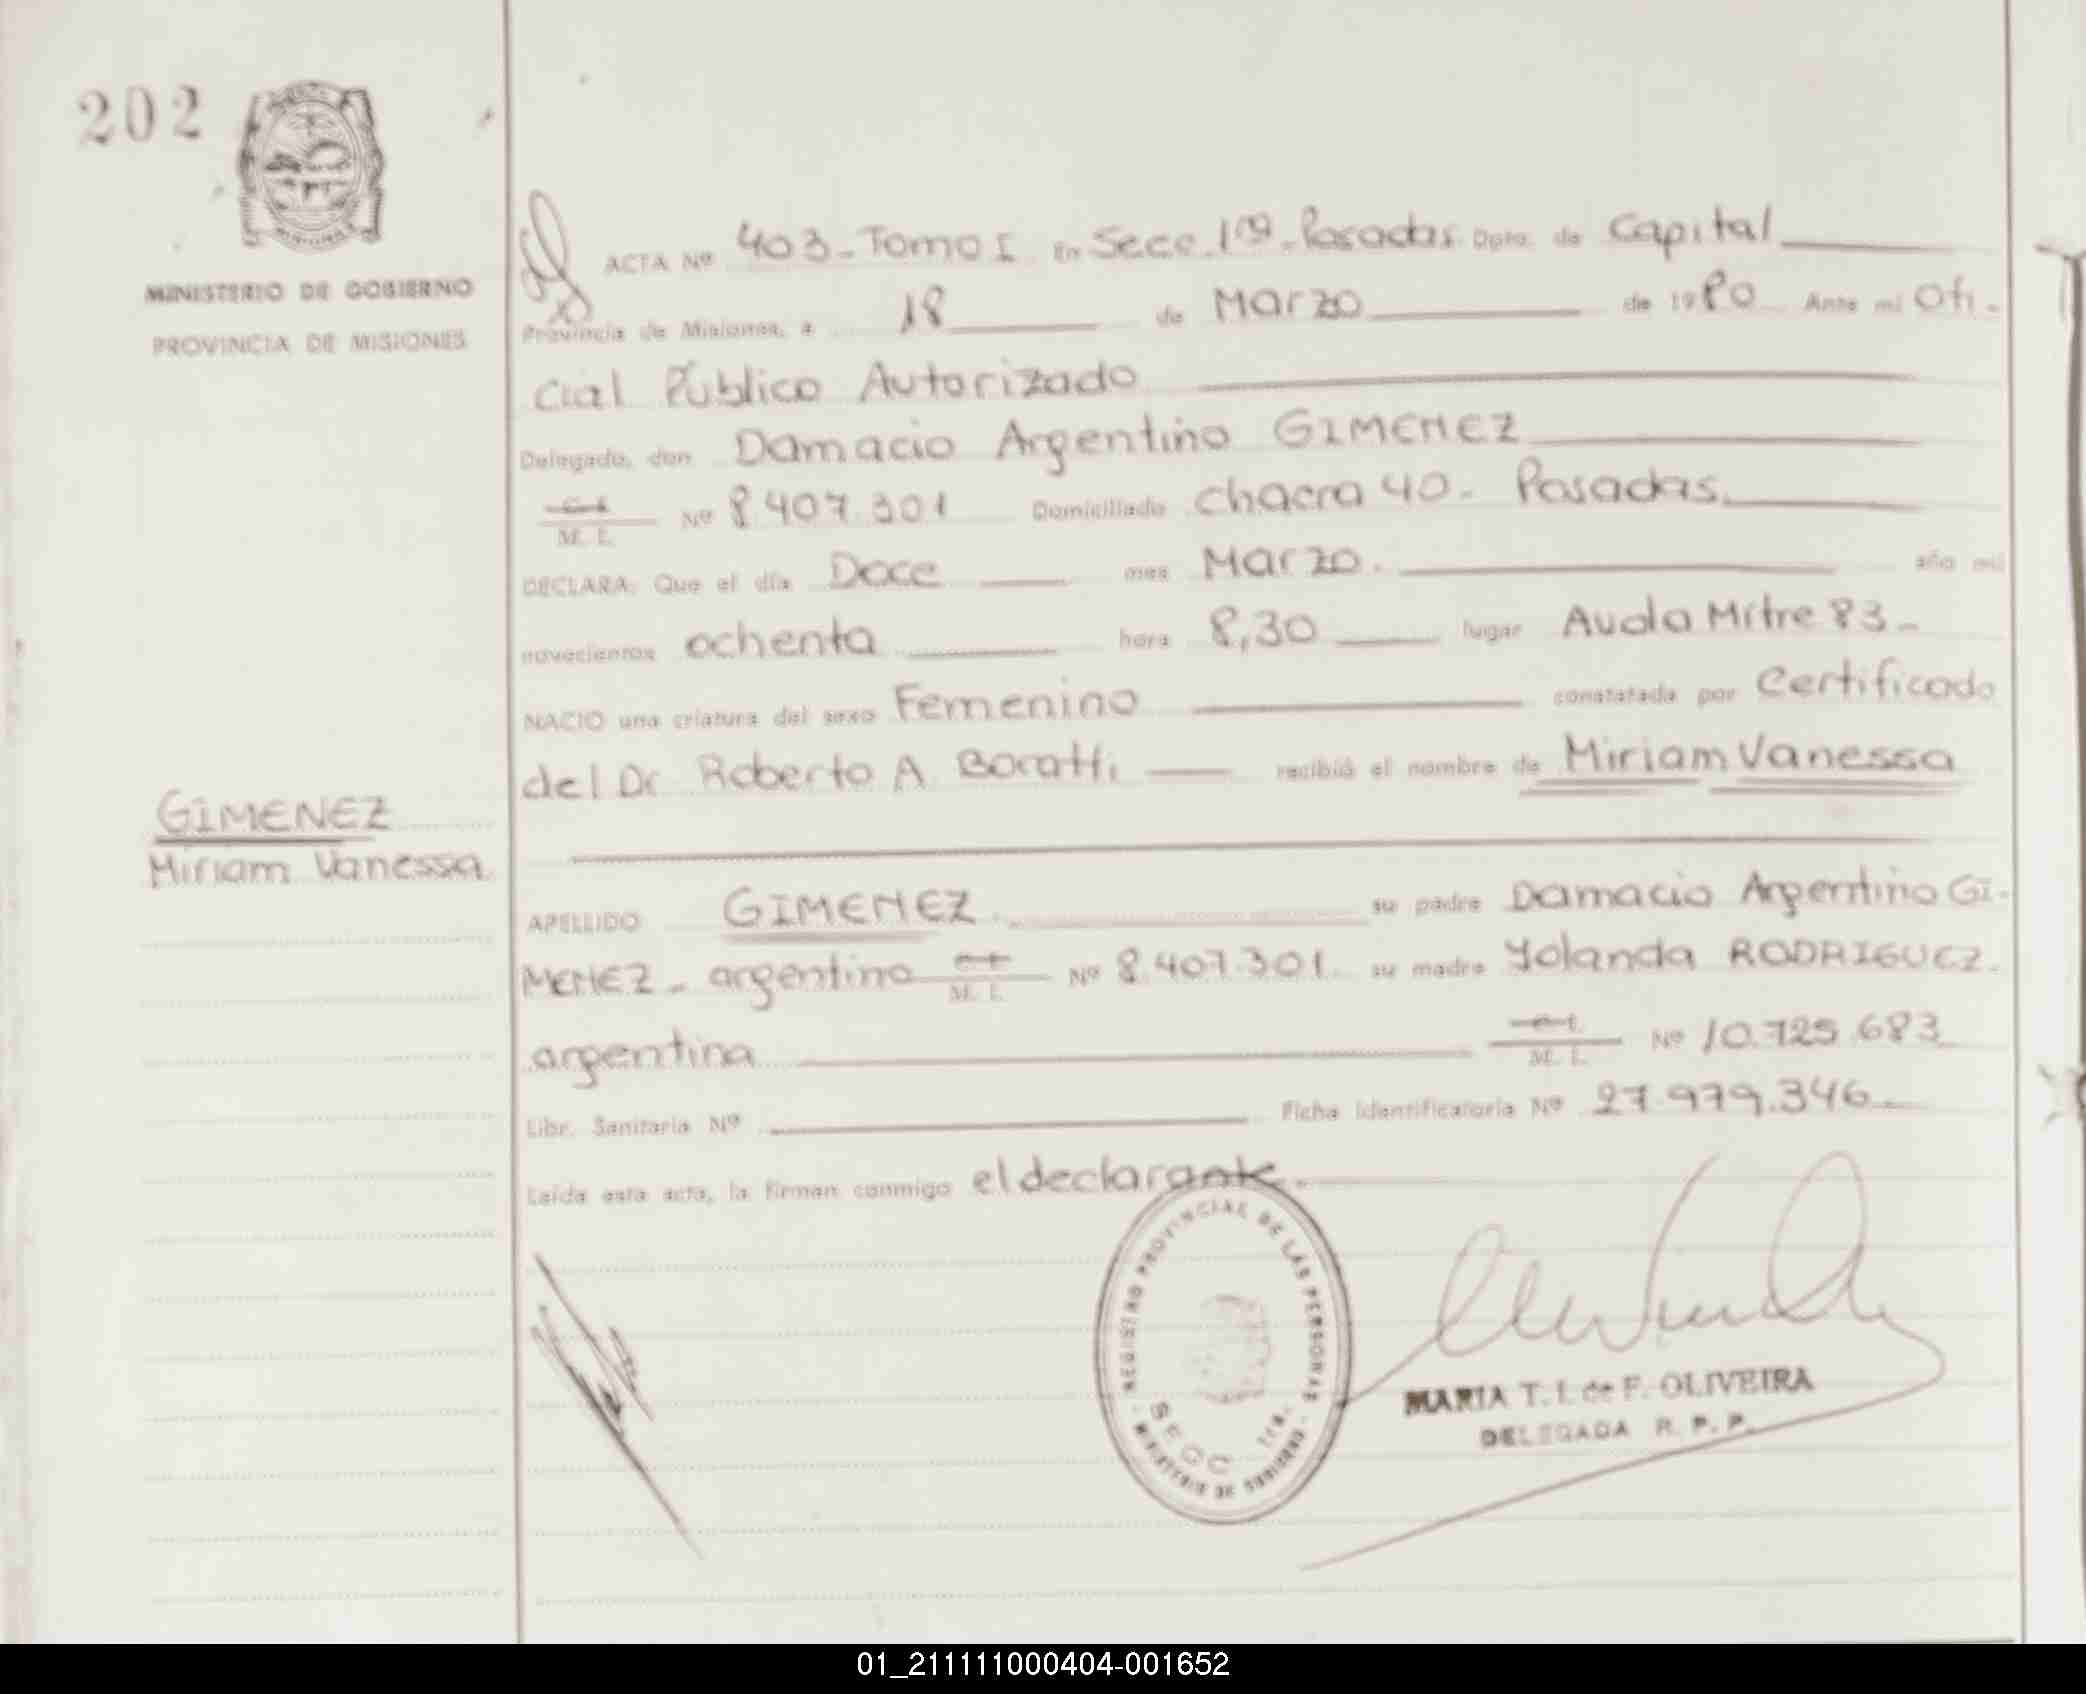 202
MINISTERIO DE GOBIERNO
PROVINCIA DE MISIONES
ACTA Nº 403-Tomo I En Secc. 1ra-Posadas Dpto. de Capital
Provincia de Misiones, a 18 de Marzo de 1980 Ante mi Ofi-
cial Público Autorizado
Delegado, don Damacio Argentino GIMENEZ
M. I. Nº 8.407.301 Domiciliado Chacra 40- Posadas
DECLARA: Que el día Doce mes Marzo. año mil
novecientos ochenta hora 8,30 lugar Avda Mitre 83-
NACIO una criatura del sexo Femenino constatada por Certificado
del Dr Roberto A. Boratti recibió el nombre de Miriam Vanessa
GIMENEZ
Miriam Vanessa
APELLIDO GIMENEZ. su padre Damacio Argentino GI-
MENEZ- argentino M. I. Nº 8.407.301. su madre Yolanda RODRIGUEZ.
argentina M. I. Nº 10.725.683
Libr. Sanitaria Nº Ficha Identificatoria Nº 27.979.346
Leída esta acta, la firman conmigo el declarante.
REGISTRO PROVINCIAL DE LAS PERSONAS
SECC 1ra.
MINISTERIO DE GOBIERNO
MARIA T. I. de F. OLIVEIRA
DELEGADA R. P. P.
01_211111000404-001652